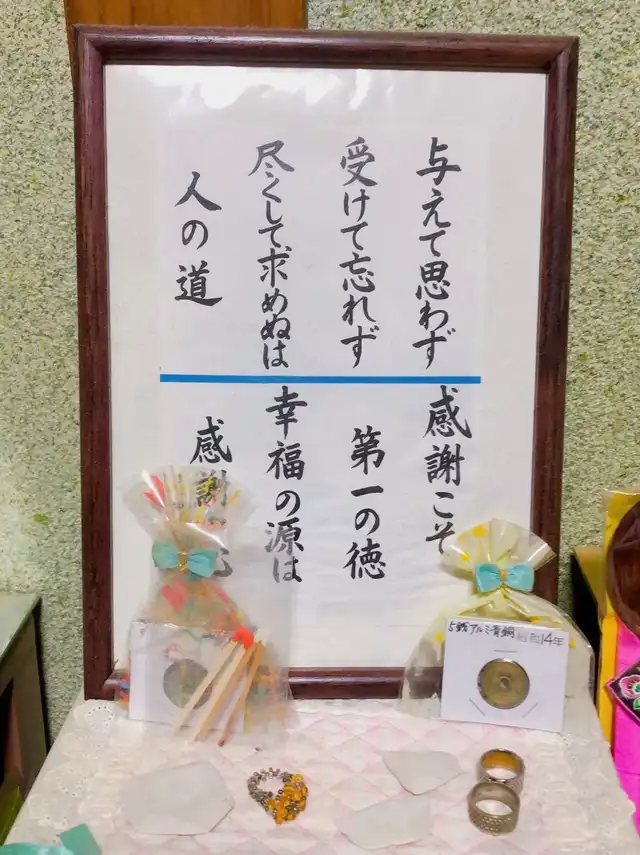 与えて思わず
受けて忘れず
尽くして求めぬは
人の道
感謝こそ
第一の徳
幸福の源は
感謝
5銭アルミ青銅 昭和14年